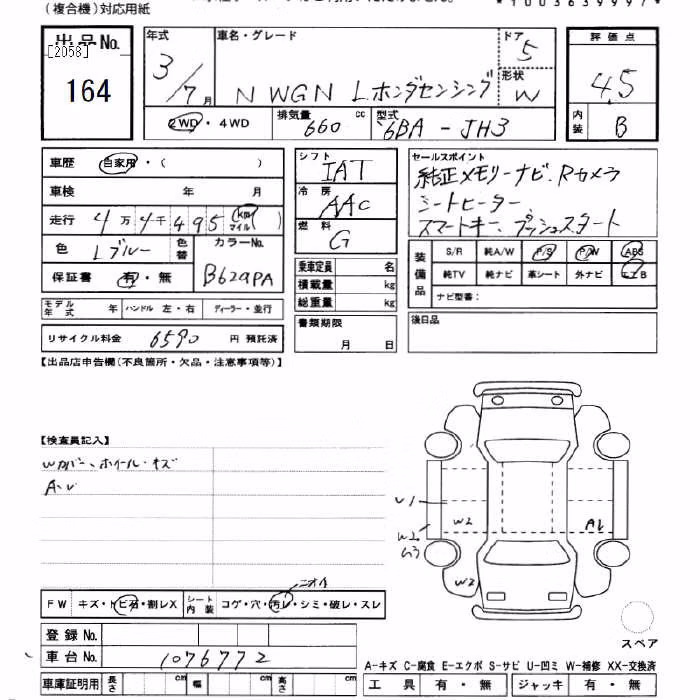 (複合機)対応用紙
*1003639997*
出品No.
[2058]
164
年式
3/7月
車名・グレード
N WGN Lホンダセンシング
ドア
5
形状
W
評価点
4.5
内装
B
2WD・4WD
排気量
660
cc
型式
6BA-JH3
車歴
自家用・( )
車検 年 月
走行 4万4千495(km マイル)
色 Lブルー
色替
カラーNo.
B629PA
保証書 有・無
モデル年式 年 ハンドル 左・右 ディーラー・並行
リサイクル料金 6590 円 預託済
シフト
IAT
冷房
AAC
燃料
G
乗車定員 名
積載量 kg
総重量 kg
書類期限
月 日
セールスポイント
純正メモリーナビ、Rカメラ
シートヒーター、
スマートキー、プッシュスタート
装備品
S/R 純A/W P/S P/W ABS
純TV 純ナビ 革シート 外ナビ エアB
ナビ型番:
後日品
【出品店申告欄(不良箇所・欠品・注意事項等)】
【検査員記入】
Wカバー、ホイール・キズ
A・U
U1
W2
W2
U3
W2
A1
F W キズ・トビ石・割レX
シート内装 コゲ・穴・汚レ・シミ・破レ・スレ
ニオイ
登録No.
車台No. 1076772
車庫証明用 長さ cm 幅 cm 高さ cm
スペア
A-キズ C-腐食 E-エクボ S-サビ U-凹ミ W-補修 XX-交換済
工具 有・無 ジャッキ 有・無